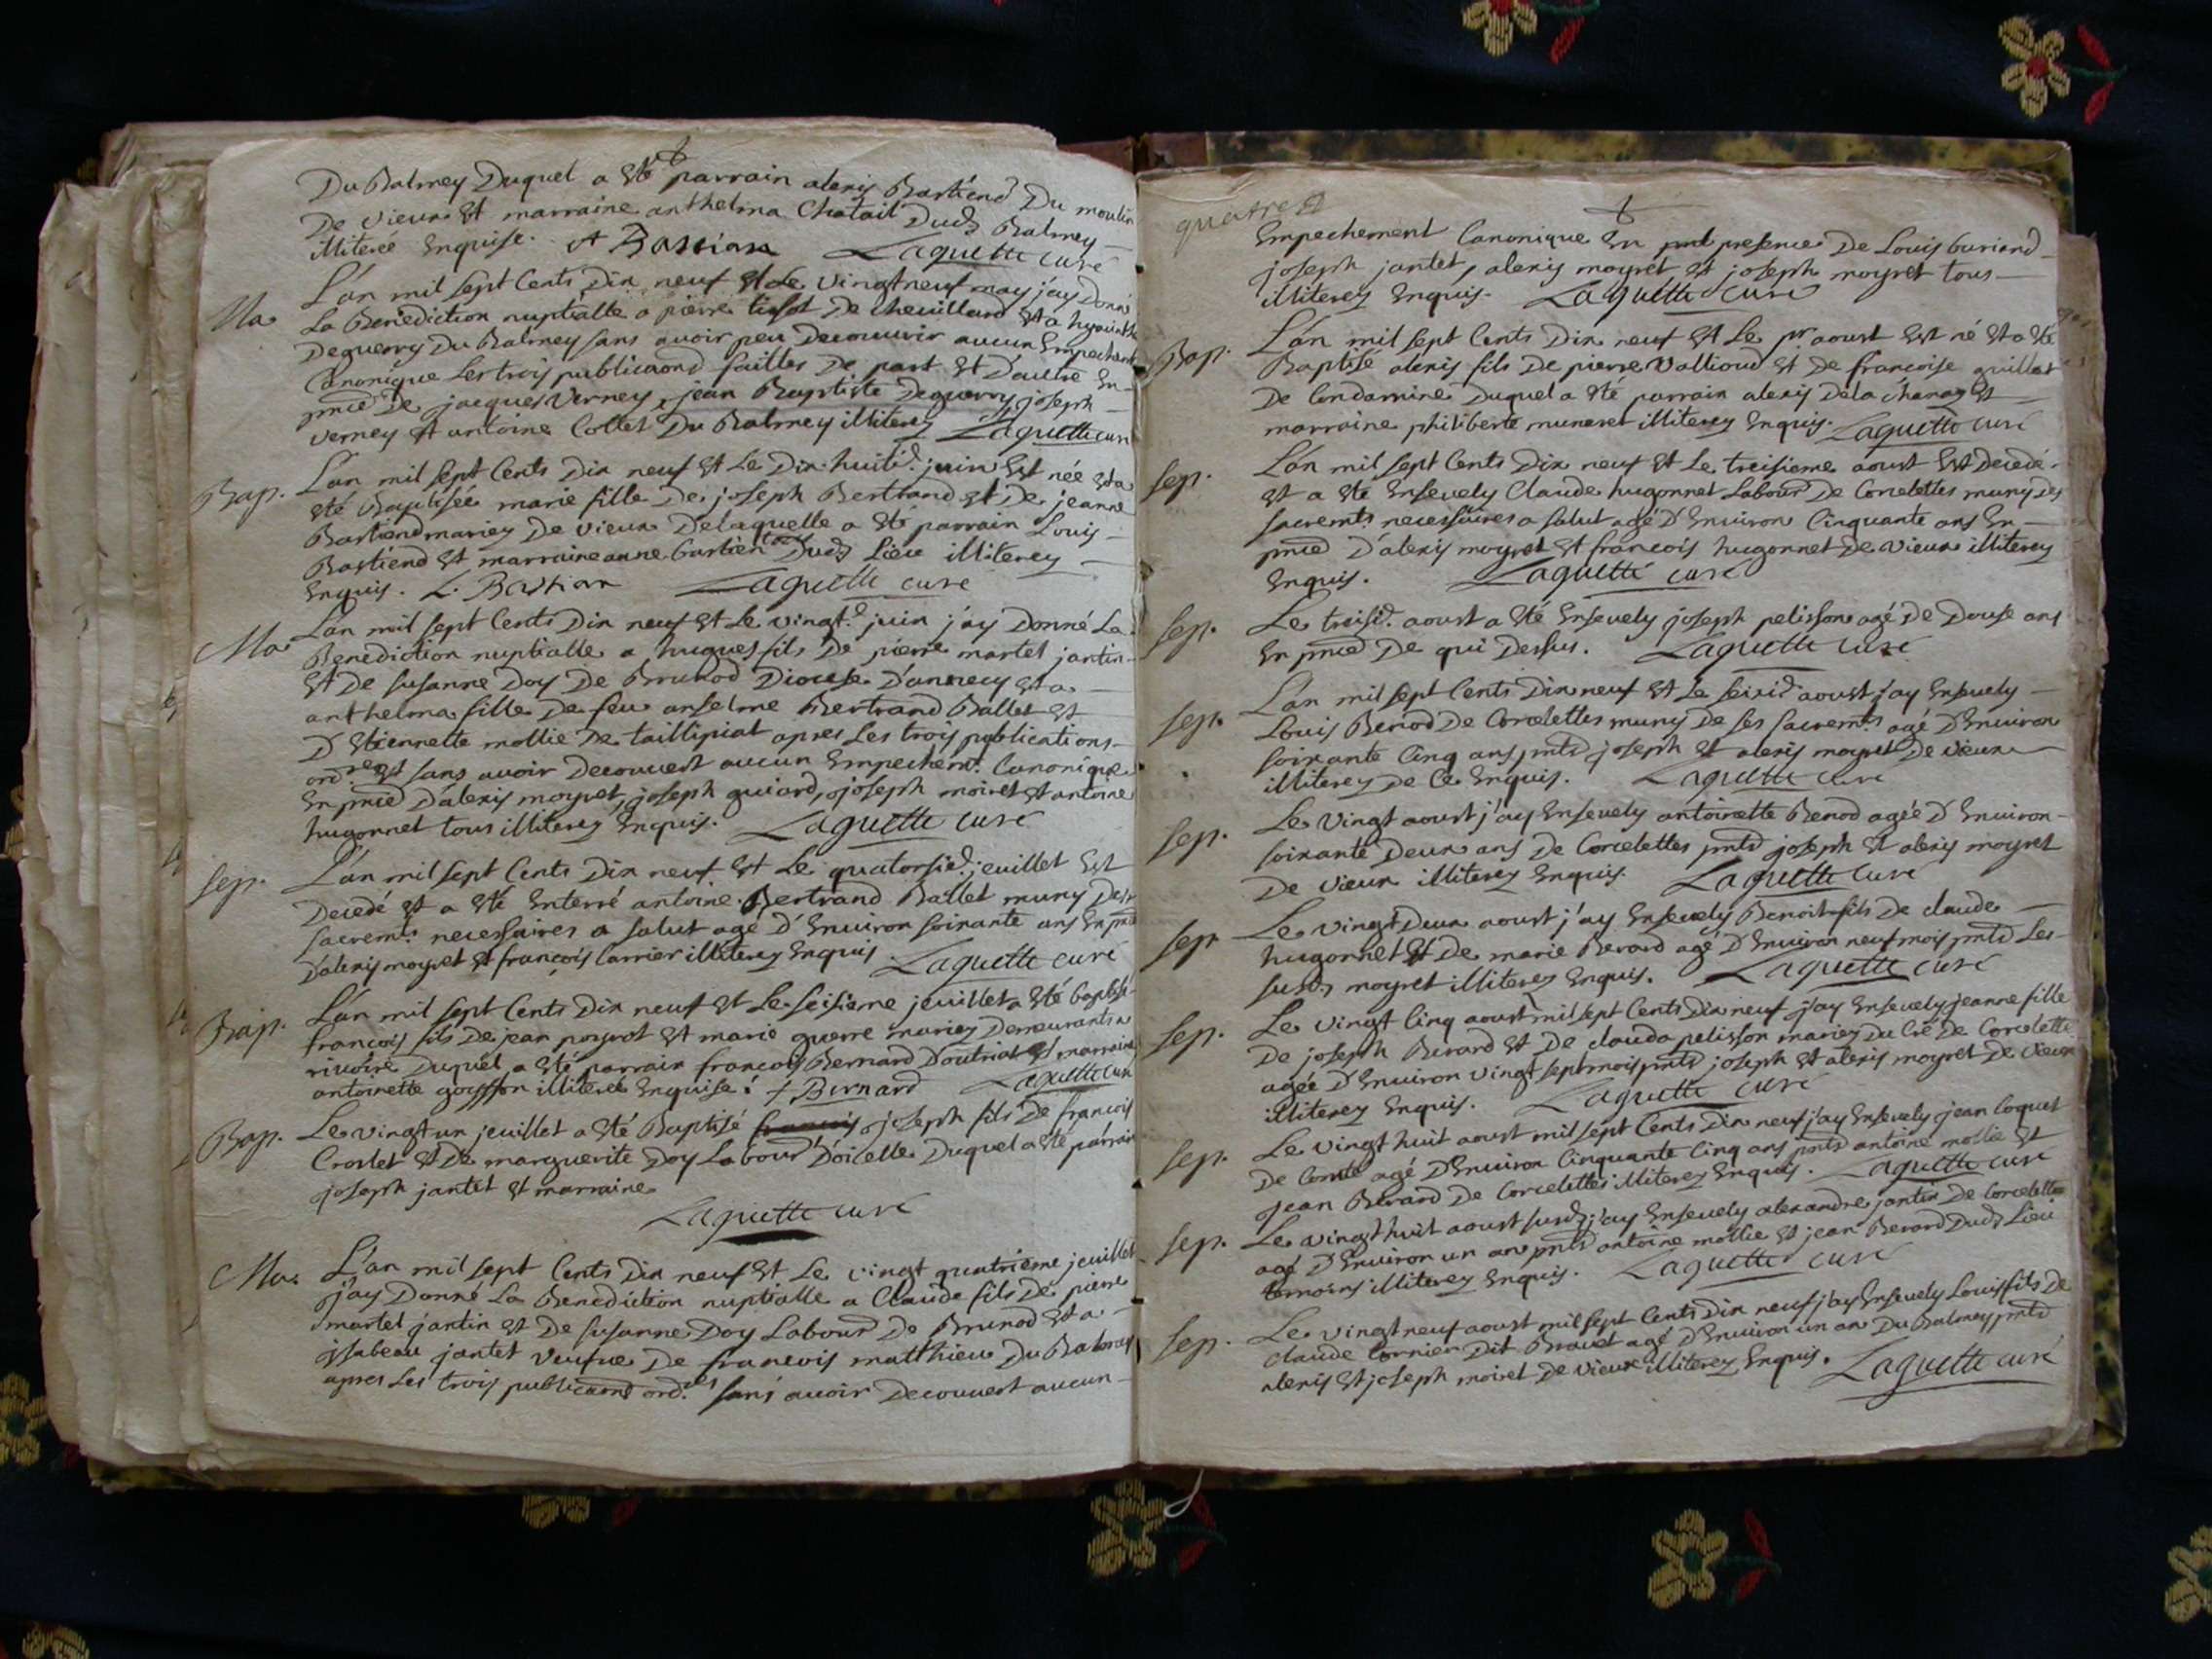 Du Balmey Duquel a eté parrain alexis Bastiend Du moulin
De vieux et marraine anthelma Chatail Dud. Balmey
illiterée Enquise. A Bastian Laguette curé
Ma. L'an mil sept Cents Dix neuf et Le vingt neuf may jay Donné
La Benediction nuptialle a pierre tissot De chevillard et a hyacinthe
Deguerry Du Balmey sans avoir peu Decouvrir aucun Empechemt
Canonique Les trois publicaond faittes De part et D'autre En
pnce De jacques Verney, jean Baptiste Deguerry, joseph
Verney et antoine Collet Du Balmey illiterez Laguette curé
Bap. L'an mil sept Cents Dix neuf et Le Dix-huitie. juin est née et a
eté Baptisée marie fille De joseph Bertrand et De jeanne
Bastiend mariez De vieux Delaquelle a eté parrain Louis
Bastiend et marraine anne bastien Dud. Lieu illiterez
Enquis. L. Bastian Laguette curé
Ma. L'an mil sept Cents Dix neuf et Le vingt. juin j'ay Donné La
Benediction nuptialle a hugues fils De pierre martel jantin
et De susanne Doy De Brunod Diocese D'annecy et a
anthelma fille De feu anselme Bertrand Ballet et
D'Etiennette mollie De taillipiat apres Les trois publications
ordres et sans avoir Decouvert aucun Empechemt. Canonique
En pnce D'alexis moyret, joseph guiard, joseph moiret et antoine
hugonnet tous illiterez Enquis. Laguette curé
Sep. L'an mil sept Cents Dix neuf et Le quatorsie. jeuillet Est
Decedé et a eté Enterré antoine Bertrand Ballet muny Des
sacremts necessaires a salut agé D'Environ soixante ans En pnce
D'alexis moyret et françois Carrier illiterez Enquis Laguette curé
Bap. L'an mil sept Cents Dix neuf et Le seisieme jeuillet a eté baptisé
francois fils De jean poyrot et marie guerre mariez Demeurants a
rivoire Duquel a eté parrain francois Bernard D'outriat et marraine
antoinette goyffon illiterée Enquise. f Bernard Laguette curé
Bap. Le vingt un jeuillet a eté Baptisé francois joseph fils De francois
Croslet et De marguerite Doy Labour D'oicelle Duquel a eté parrain
joseph jantet et marraine
Laguette curé
Ma. L'an mil sept Cents Dix neuf et Le vingt quatrième jeuillet
j'ay Donné La Benediction nuptialle a Claude fils De pierre
martel jantin et De susanne Doy Labour De Brunod et a
ysabeau jantet veufve De francois matthieu Du Balmey
apres Les trois publicaond ordres sans avoir Decouvert aucun
quatre
Empechement Canonique En presence De Louis buriand
joseph jantet, alexis moyret, et joseph moyret tous
illiterez Enquis. Laguette curé
Bap. L'an mil sept Cents Dix neuf et Le pr aoust est né et a eté
Baptisé alexis fils De pierre Valliond et De francoise guillot
De Condamine Duquel a eté parrain alexis Delachana et
marraine philiberte muneret illiterez Enquis. Laguette curé
Sep. L'an mil sept Cents Dix neuf et Le treisieme aoust est Decedé
et a eté Ensevely Claude hugonnet Labour De Corcelettes muny des
sacremts necessaires a salut agé D'Environ Cinquante ans En
pnce D'alexis moyret et françois hugonnet De vieux illiterez
Enquis. Laguette curé
Sep. Le treisie. aoust a eté Ensevely joseph pelisson agé De Douse ans
En pnce De qui Dessus. Laguette curé
Sep. L'an mil sept Cents Dix neuf et Le seisie. aoust j'ay Ensevely
Louis Benod De Corcelettes muny De ses sacremts agé D'Environ
soixante Cinq ans pnts joseph et alexis moyret De vieux
illiterez De Ce Enquis. Laguette curé
Sep. Le vingt aoust j'ay Ensevely antoinette Benod agée D'Environ
soixante Deux ans De Corcelettes pnts joseph et alexis moyret
De vieux illiterez Enquis. Laguette curé
Sep. Le vingt Deux aoust j'ay Ensevely Benoit fils De claude
hugonnet et De marie Berard agé D'Environ neuf mois pnts Les
susds moyret illiterez Enquis. Laguette curé
Sep. Le vingt Cinq aoust mil sept Cents Dix neuf j'ay Ensevely jeanne fille
De joseph Berard et De clauda pelisson mariez Du Cré De Corcelette
agée D'Environ vingt sept mois pnts joseph et alexis moyret De vieux
illiterez Enquis. Laguette curé
Sep. Le vingt huit aoust mil sept Cents Dix neuf j'ay Ensevely jean Coquet
De Comte agé D'Environ Cinquante Cinq ans pnts antoine mollie et
jean Berard De Corcelettes illiterez Enquis. Laguette curé
Sep. Le vingt huit aoust susd. j'ay Ensevely alexandre jantin De Corcelettes
agé D'Environ un an pnts antoine mollie et jean Berard Dud. Lieu
temoins illiterez Enquis. Laguette curé
Sep. Le vingt neuf aoust mil sept Cents Dix neuf j'ay Ensevely Louis fils De
claude Cornier Dit Brouet agé D'Environ un an Du Balmey pnts
alexis et joseph moiret De vieux illiterez Enquis. Laguette curé